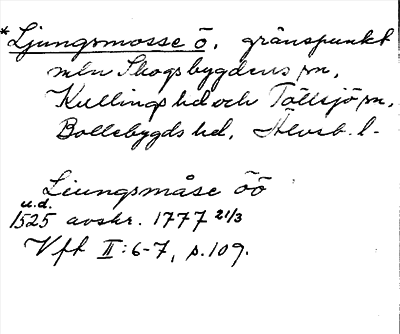 *Ljungsmosse ö, gränspunkt
mln Skogsbygdens sn,
Kullings hd och Töllsjö sn,
Bollebygds hd, Älvsb. l.
Liungsmåse öö
u.d.
1525 avskr. 1777 21/3
Vfft II:6-7, s.109.